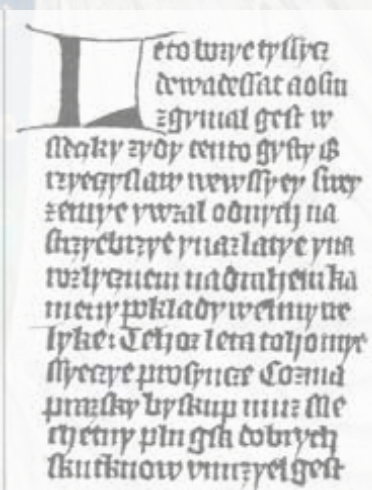 Leto wzye tyssycz
dewadessat a osm
zgymal gest w
ssecky zydy tento gysty B
rzyecyslaw wewssycy swey
zemye y wzal od nych na
strzyebrzye y na zlatye y na
rozlycznem na drahem ka
meny poklady welmy we
lyke: Tehoz leta toho mye
ssyecze prosyncze Cozma
prazsky byskup muz sle
chetny pln gsa dobrych
skutkuow vmrzyel gest